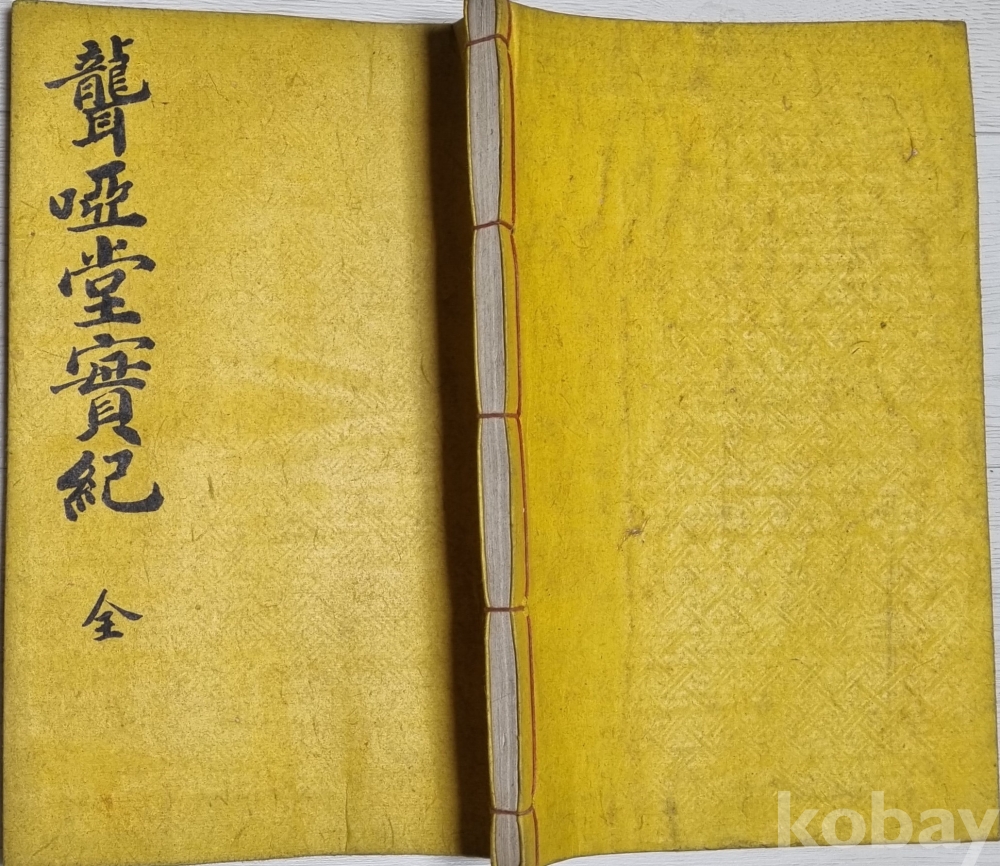 聾啞堂實紀 全
kobay